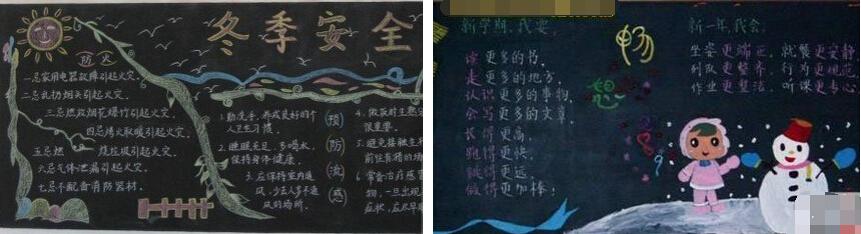 冬季安全
防火
一忌家用电器故障引起火灾。
二忌乱扔烟头引起火灾。
三忌燃放烟花爆竹引起火灾。
四忌烤火取暖引起火灾。
五忌焚烧垃圾引起火灾。
六忌气体泄漏引起火灾。
七忌不配备消防器材。
预防流感
1.勤洗手，养成良好的个
人卫生习惯。
2.睡眠充足，多喝水，
保持身体健康。
3.应保持室内通
风，少去人多不通
风的场所。
4.做饭时生熟分
很重要。
5.避免接触生
前往有猪的场
6.常备治疗感冒
物，一旦出现
症状，应尽早
新学期，我要，
读更多的书，
走更多的地方，
认识更多的事物，
会写更多的文章，
长得更高，
跑得更快，
跳得更远，
做得更加棒！
畅想
新一年，我会，
坐姿更端正，就餐更安静
列队更整齐，行为更规范
作业更整洁，听课更专心